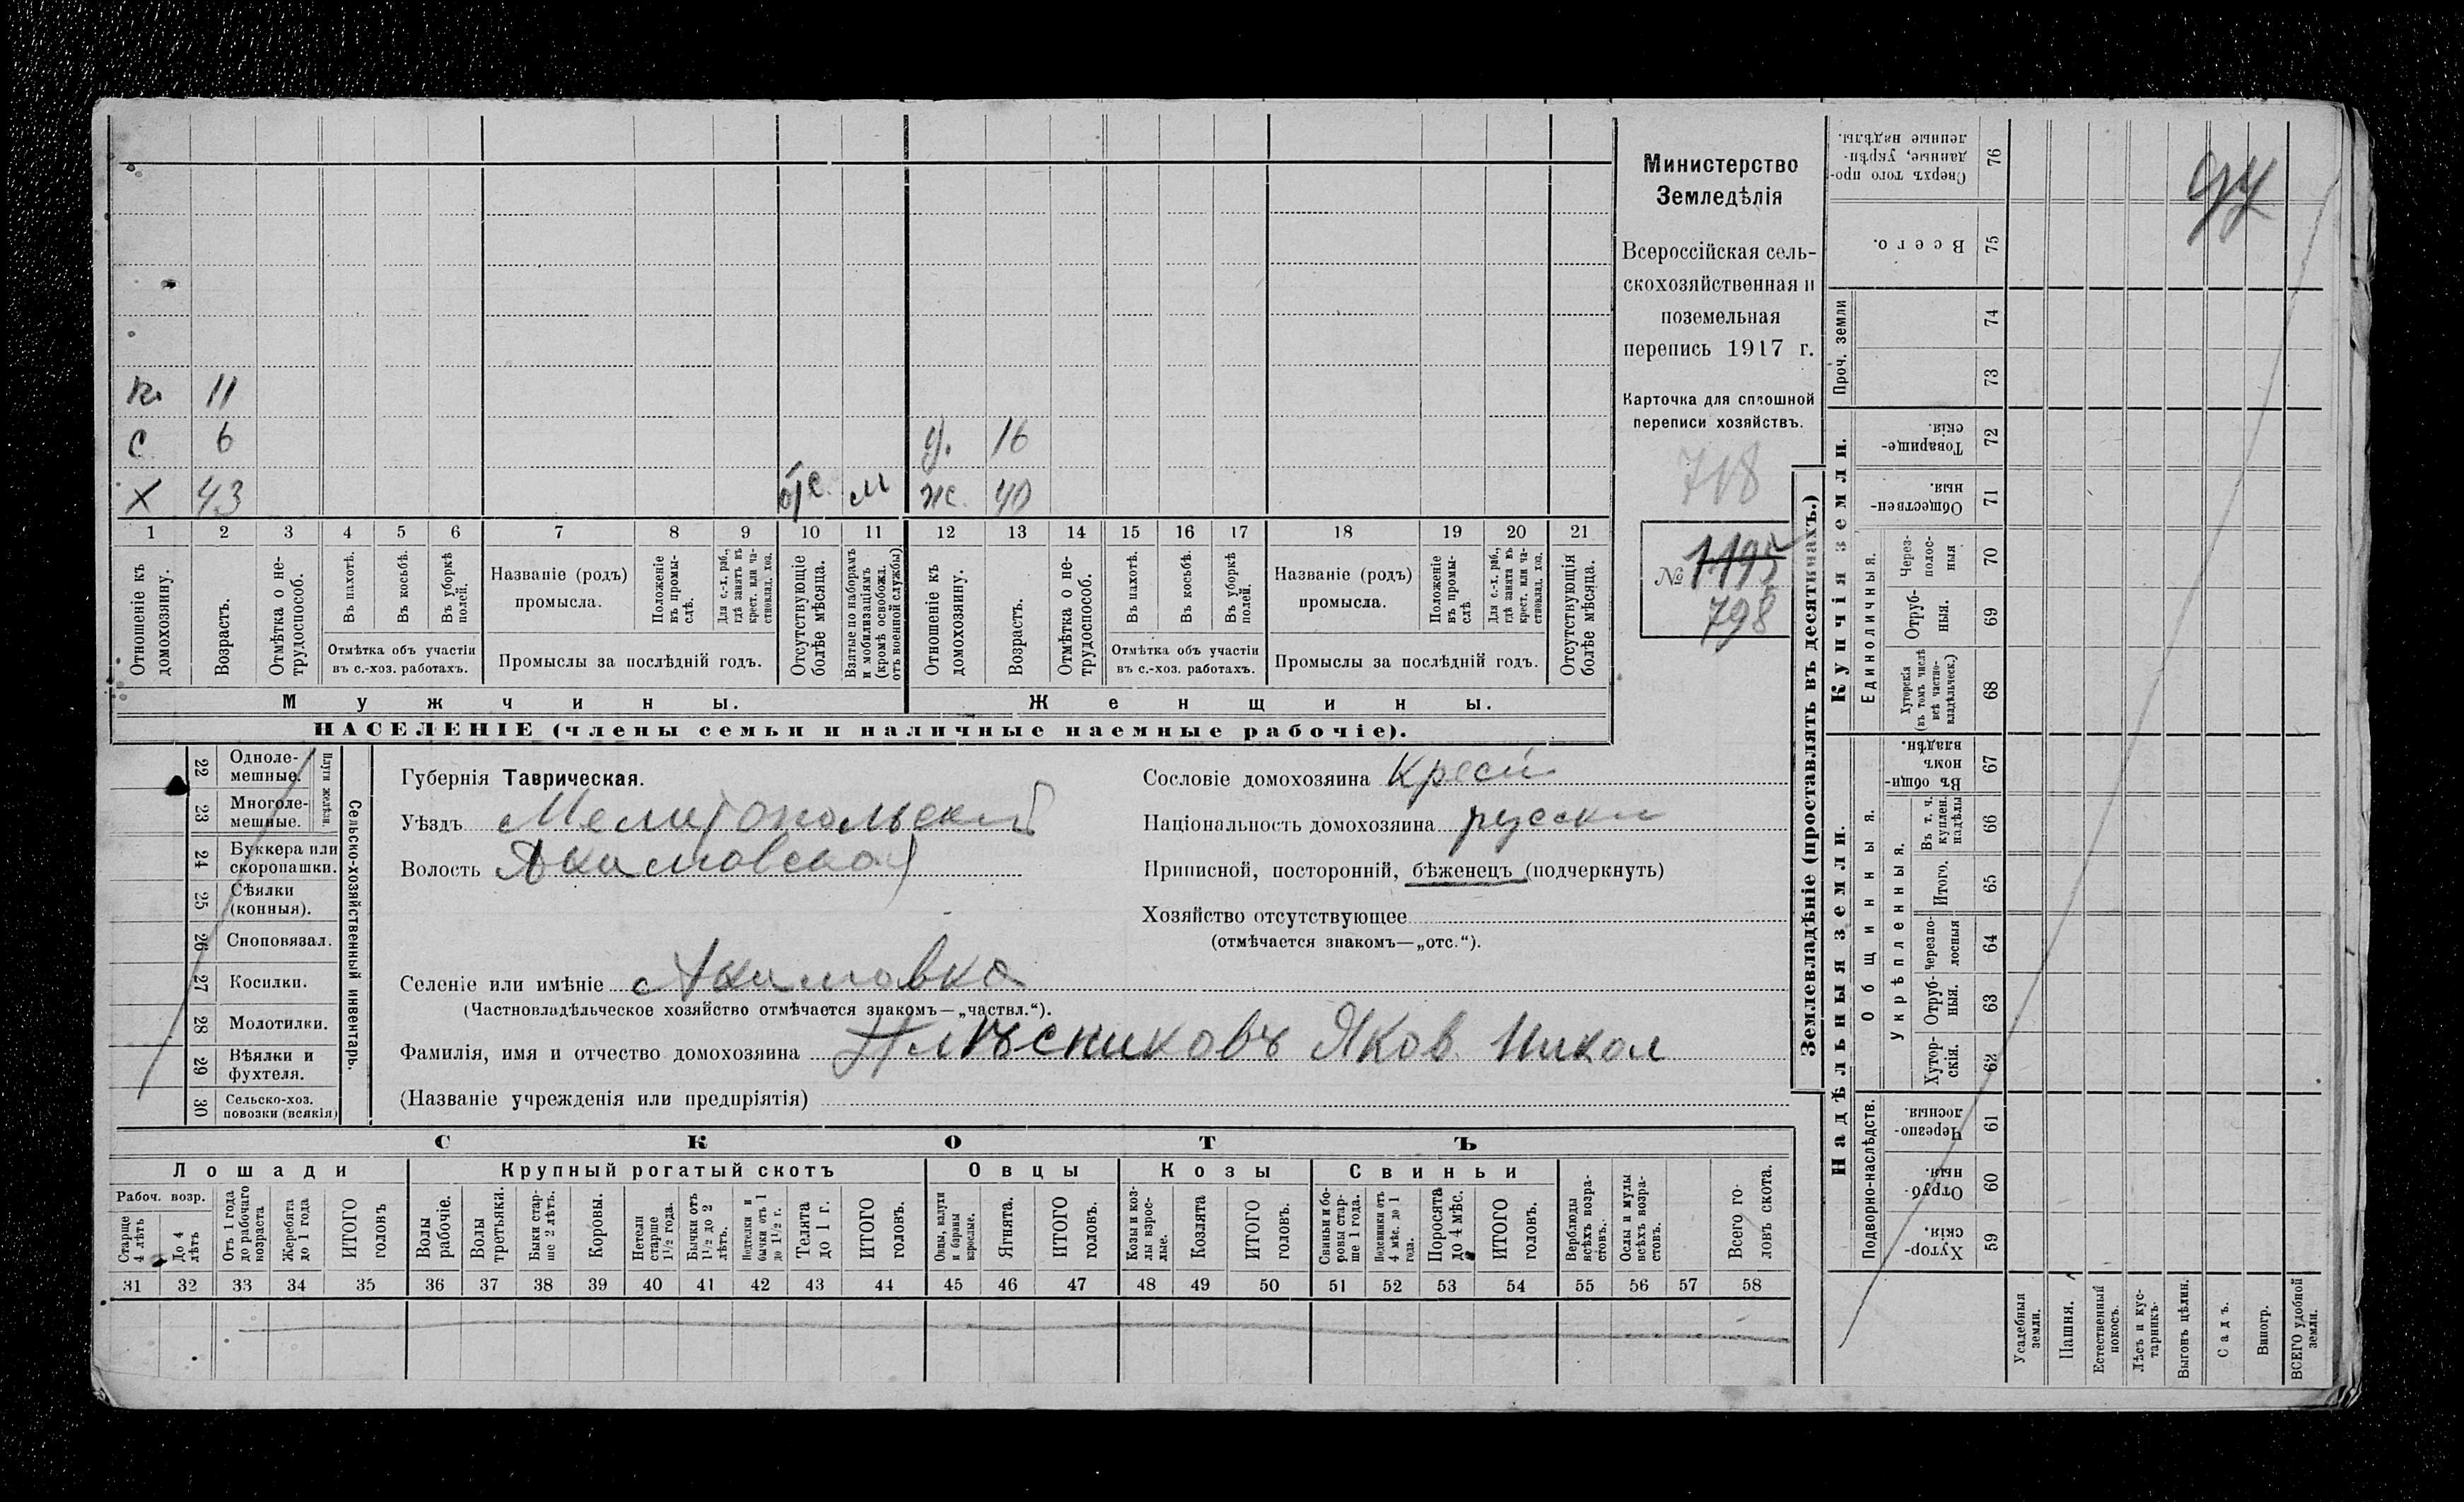 к. 11
с 6 д. 16
Х 43 отс. м ж. 40
1 2 3 4 5 6 7 8 9 10 11 12 13 14 15 16 17 18 19 20 21
Отношеніе къ домохозяину.
Возрастъ.
Отмѣтка о не-
трудоспособ.
Въ пахотѣ.
Въ косьбѣ.
Въ уборкѣ
полей.
Отмѣтка объ участіи
въ с.-хоз. работахъ.
Названіе (родъ)
промысла.
Положеніе
въ промы-
слѣ.
Для с.-х. раб.,
гдѣ занятъ въ
крест. или ча-
стновлад. хоз.
Промыслы за послѣдній годъ.
Отсутствующіе
болѣе мѣсяца.
Взятые по наборамъ
и мобилизаціямъ
(кромѣ освобожд.
отъ военной службы).
Отношеніе къ
домохозяину.
Возрастъ.
Отмѣтка о не-
трудоспособ.
Въ пахотѣ.
Въ косьбѣ.
Въ уборкѣ
полей.
Отмѣтка объ участіи
въ с.-хоз. работахъ.
Названіе (родъ)
промысла.
Положеніе
въ промы-
слѣ
Для с.-х. раб.,
гдѣ занята въ
крест. или ча-
стновлад. хоз.
Промыслы за послѣдній годъ.
Отсутствующія
болѣе мѣсяца.
Мужчины. Женщины.
НАСЕЛЕНІЕ (члены семьи и наличные наемные рабочіе).
Министерство
Земледѣлія
Всероссійская сель-
скохозяйственная и
поземельная
перепись 1917 г.
Карточка для сплошной
переписи хозяйствъ.
718
№ 1195
798
Сельско-хозяйственный инвентарь.
Плуги желѣзн.
22 Одноле-
мешные.
23 Многоле-
мешные.
24 Буккера или
скоропашки.
25 Сѣялки
(конныя).
26 Сноповязал.
27 Косилки.
28 Молотилки.
29 Вѣялки и
фухтеля.
30 Сельско-хоз.
повозки (всякія)
Губернія Таврическая.
Уѣздъ Мелитопольский
Волость Акимовская
Селеніе или имѣніе Акимовка
(Частновладѣльческое хозяйство отмѣчается знакомъ—„частвл.“).
Фамилія, имя и отчество домохозяина Яков. Никол
(Названіе учрежденія или предпріятія)
Сословіе домохозяина
Національность домохозяина русски
Приписной, посторонній, бѣженецъ (подчеркнуть)
Хозяйство отсутствующее
(отмѣчается знакомъ—„отс.“).
СКОТЪ
Лошади Крупный рогатый скотъ Овцы Козы Свиньи
Рабоч. возр.
Старше
4 лѣтъ
До 4
лѣтъ
Отъ 1 года
до рабочаго
возраста
Жеребята
до 1 года
ИТОГО
головъ
Волы
рабочіе.
Волы
третьяки.
Быки стар-
ше 2 лѣтъ.
Коровы.
Нетели
старше
1½ года.
Бычки отъ
1½ до 2
лѣтъ.
Подтелки и
бычки отъ 1
до 1½ г.
Телята
до 1 г.
ИТОГО
головъ.
Овцы, валухи
и бараны
взрослые.
Ягнята.
ИТОГО
головъ.
Козы и коз-
лы взрос-
лые.
Козлята
ИТОГО
головъ.
Свиньи и бо-
ровы стар-
ше 1 года.
Подсвинки отъ
4 мѣс. до 1
года.
Поросята
до 4 мѣс.
ИТОГО
головъ.
Верблюды
всѣхъ возра-
стовъ.
Ослы и мулы
всѣхъ возра-
стовъ.
Всего го-
ловъ скота.
31 32 33 34 35 36 37 38 39 40 41 42 43 44 45 46 47 48 49 50 51 52 53 54 55 56 57 58
Землевладѣніе (проставлять въ десятинахъ.)
Надѣльныя земли. Купчія земли. Проч. земли
Подворно-наслѣдств.
Общинныя.
Укрѣпленныя.
Единоличныя.
Сверхъ того про-
данные, укрѣп-
ленные надѣлы. 76
Всего. 75
74
73
Товарище-
скія. 72
Обществен-
ныя. 71
Через-
полос-
ныя 70
Отруб-
ныя. 69
Хуторскія
(въ томъ числѣ
всѣ частно-
владѣльческ.) 68
Въ общи-
номъ
владѣн. 67
Въ т. ч.
куплен.
надѣлы 66
Итого. 65
Черезпо-
лосныя 64
Отруб-
ныя. 63
Хутор-
скія. 62
Черезпо-
лосныя. 61
Отруб-
ныя. 60
Хутор-
скія. 59
Усадебныя
земли.
Пашня.
Естественный
покосъ.
Лѣсъ и кус-
тарникъ.
Выгонъ цѣлин.
Садъ.
Виногр.
ВСЕГО удобной
земли.